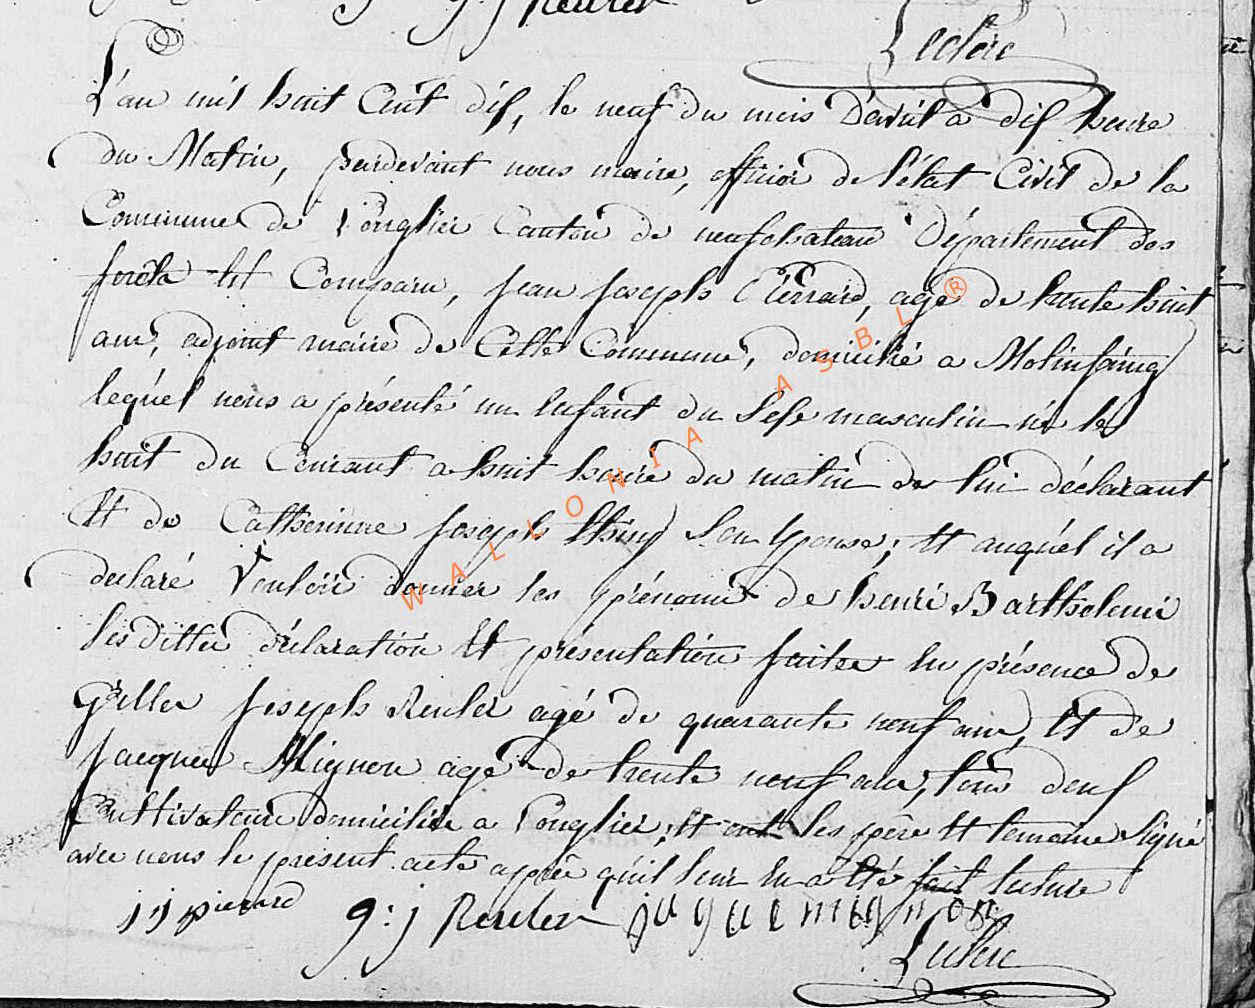 g: j Reuler
Leclerc
L'an mil huit Cent dix, le neuf du mois D'avril a dix heure
du Matin, pardevant nous maire, officier de l'état Civil de la
Commune de Longlier Canton de neufchateau Département des
forêts est Comparu, jean joseph Pierrard, agé de trente huit
ans, adjoint maire de Cette Commune, domicilié a Molinfaing
lequel nous a présenté un Enfant du Sexe masculin né le
huit du Courant a huit heure du matin de lui déclarant
Et de Catherinne joseph Son Epouse; Et auquel il a
declaré Vouloir donner les prénoms de henri Bartholemi
les dittes déclaration Et présentation faites En présence de
Gilles joseph Reuler agé de quarante neuf ans, Et de
jacques Mignon agé de trente neuf ans, tous deux
Cultivateurs domiciliés a Longlier, Et ont les père Et temoins Signé
avec nous le présent acte après qu'il leur En a Eté fait lecture
jj pierard g: j Reuler jaque mignon
Leclerc
WALLONIA ASBL ®